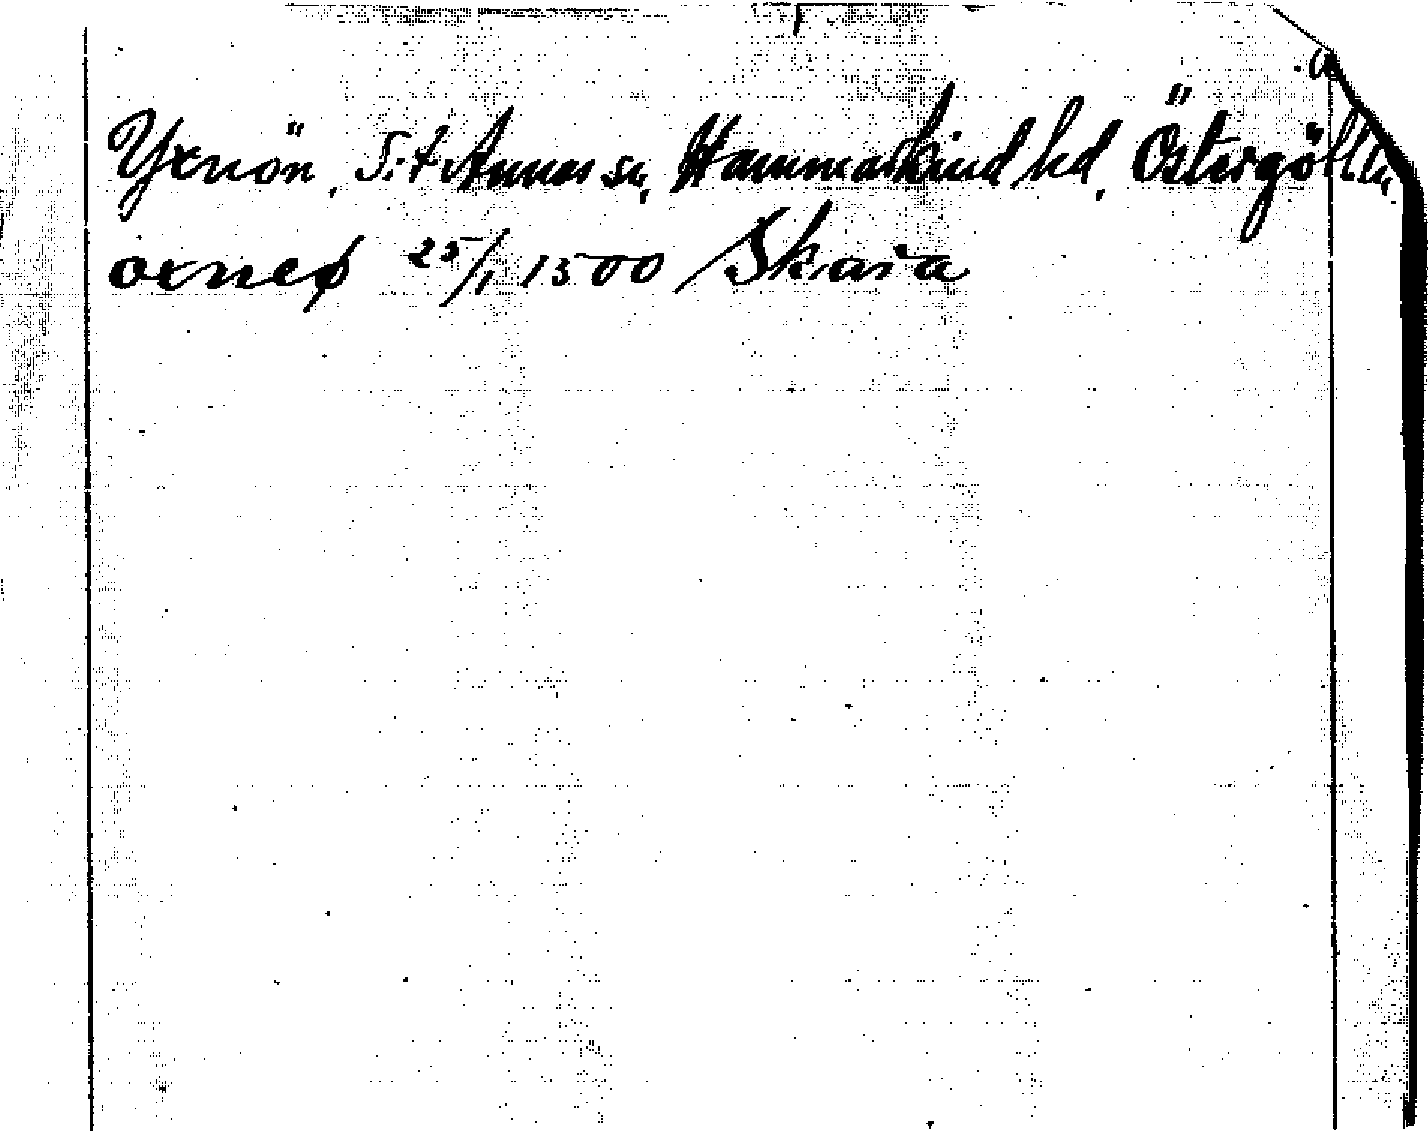 Yxnön, S:t Annas sn, Hammarkind hd, Östergötl.
oxneø 25/1 1500 Skara